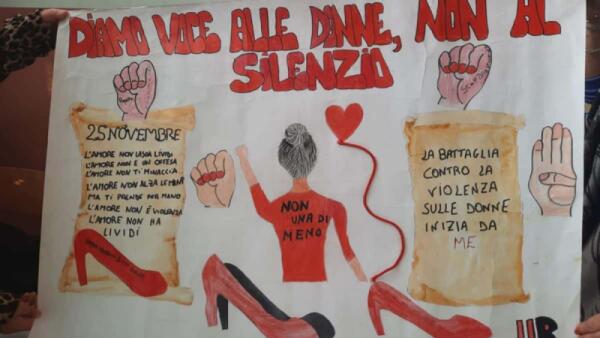 DIAMO VOCE ALLE DONNE, NON AL
SILENZIO
25 NOVEMBRE
L'AMORE NON LASCIA LIVIDI
L'AMORE NON È UN OFFESA
L'AMORE NON TI MINACCIA
L'AMORE NON ALZA LE MANI
MA TI PRENDE PER MANO
L'AMORE NON È VIOLENZA
L'AMORE NON HA
LIVIDI
NON
UNA DI
MENO
LA BATTAGLIA
CONTRO LA
VIOLENZA
SULLE DONNE
INIZIA DA
ME
IIB